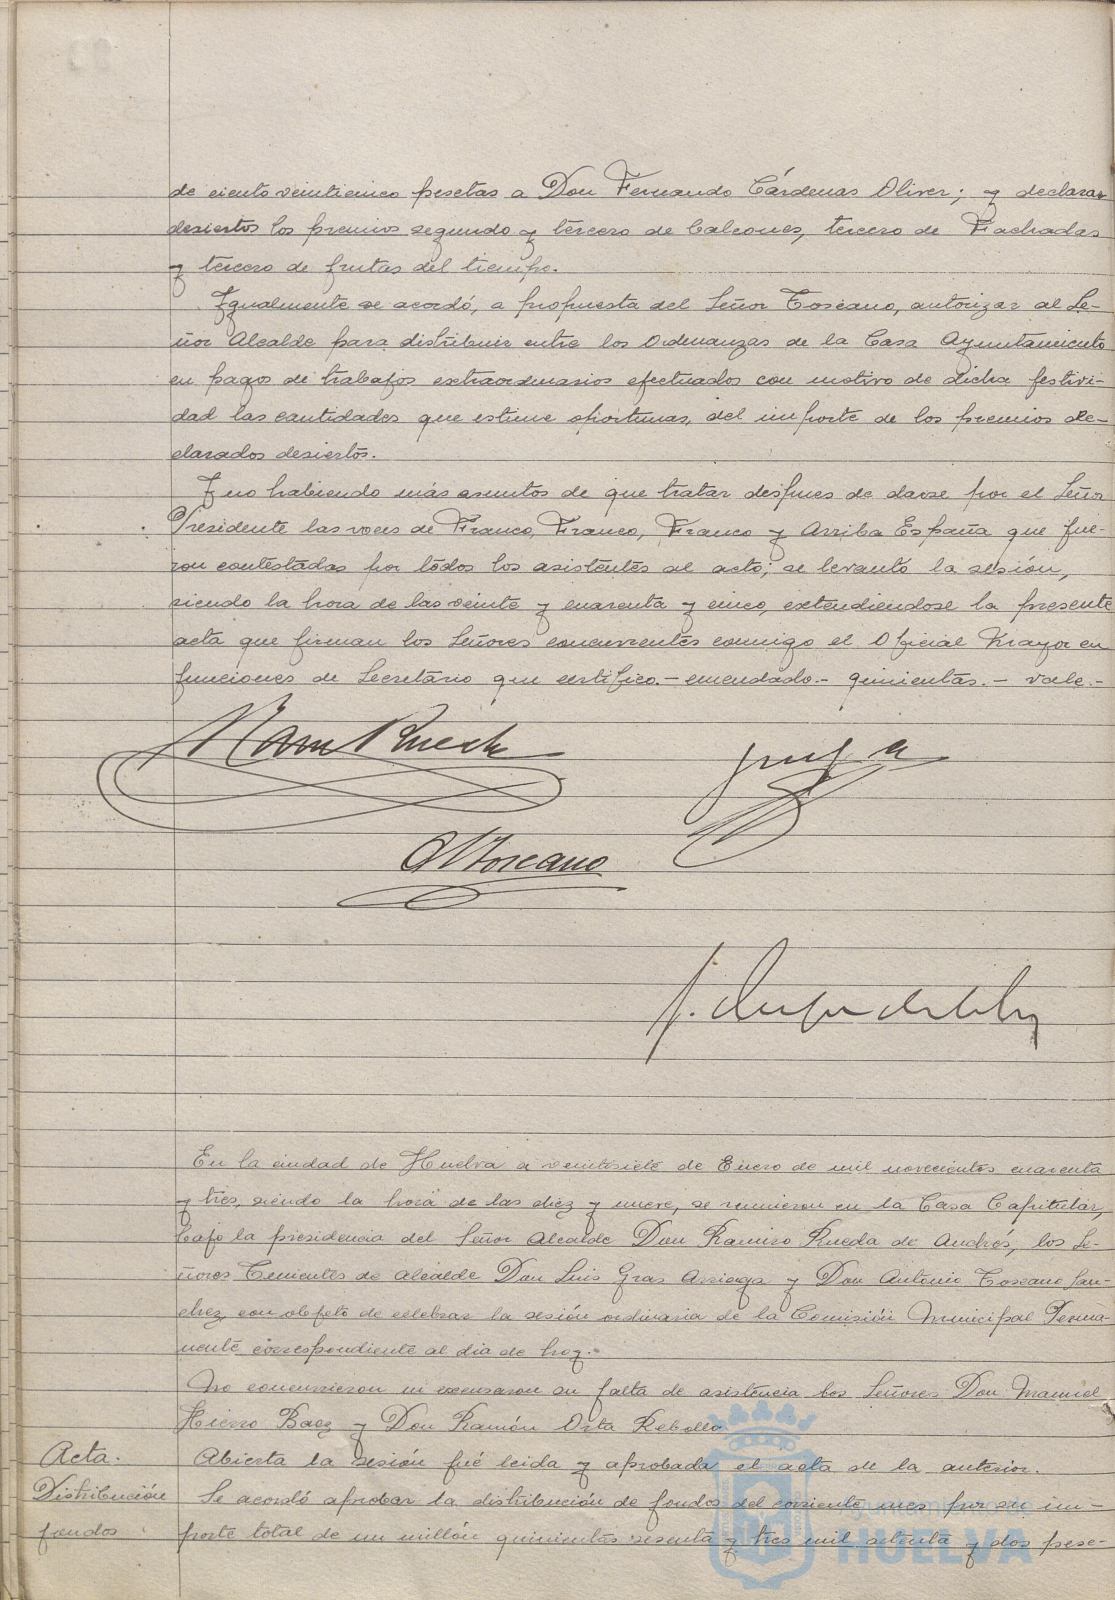 de ciento veinticinco pesetas a Don Fernando Cárdenas Oliver; y declarar
desiertos los premios segundo y tercero de Balcones, tercero de Fachadas
y tercero de frutas del tiempo.
Igualmente se acordó, a propuesta del Señor Toscano, autorizar al Se-
ñor Alcalde para distribuir entre los Ordenanzas de la Casa Ayuntamiento
en pagos de trabajos extraordinarios efectuados con motivo de dicha festivi-
dad las cantidades que estime oportunas, del importe de los premios de-
clarados desiertos.
Y no habiendo más asuntos de que tratar despues de darse por el Señor
Presidente las voces de Franco, Franco, Franco y Arriba España que fue-
ron contestadas por todos los asistentes al acto; se levantó la sesión,
siendo la hora de las veinte y cuarenta y cinco, extendiendose la presente
acta que firman los Señores concurrentes conmigo el Oficial Mayor en
funciones de Secretario que certifico.- enmendado.- quinientas.- vale.-
Ram Rueda
A Toscano
En la ciudad de Huelva a veintisiete de Enero de mil novecientos cuarenta
y tres, siendo la hora de las diez y nueve, se reunieron en la Casa Capitular,
bajo la presidencia del Señor Alcalde Don Ramiro Rueda de Andrés, los Se-
ñores Tenientes de Alcalde Don Luis Gras Arriaga y Don Antonio Toscano San-
chez, con objeto de celebrar la sesión ordinaria de la Comisión Municipal Perma-
nente correspondiente al dia de hoy.-
No concurrieron ni excusaron su falta de asistencia los Señores Don Manuel
Hierro Baez y Don Ramón Orta Rebollo
Acta. Abierta la sesión fué leida y aprobada el acta de la anterior.
Distribución Se acordó aprobar la distribución de fondos del corriente mes por su im-
fondos porte total de un millón quinientas sesenta y tres mil setenta y dos pese-
Ayuntamiento de
HUELVA